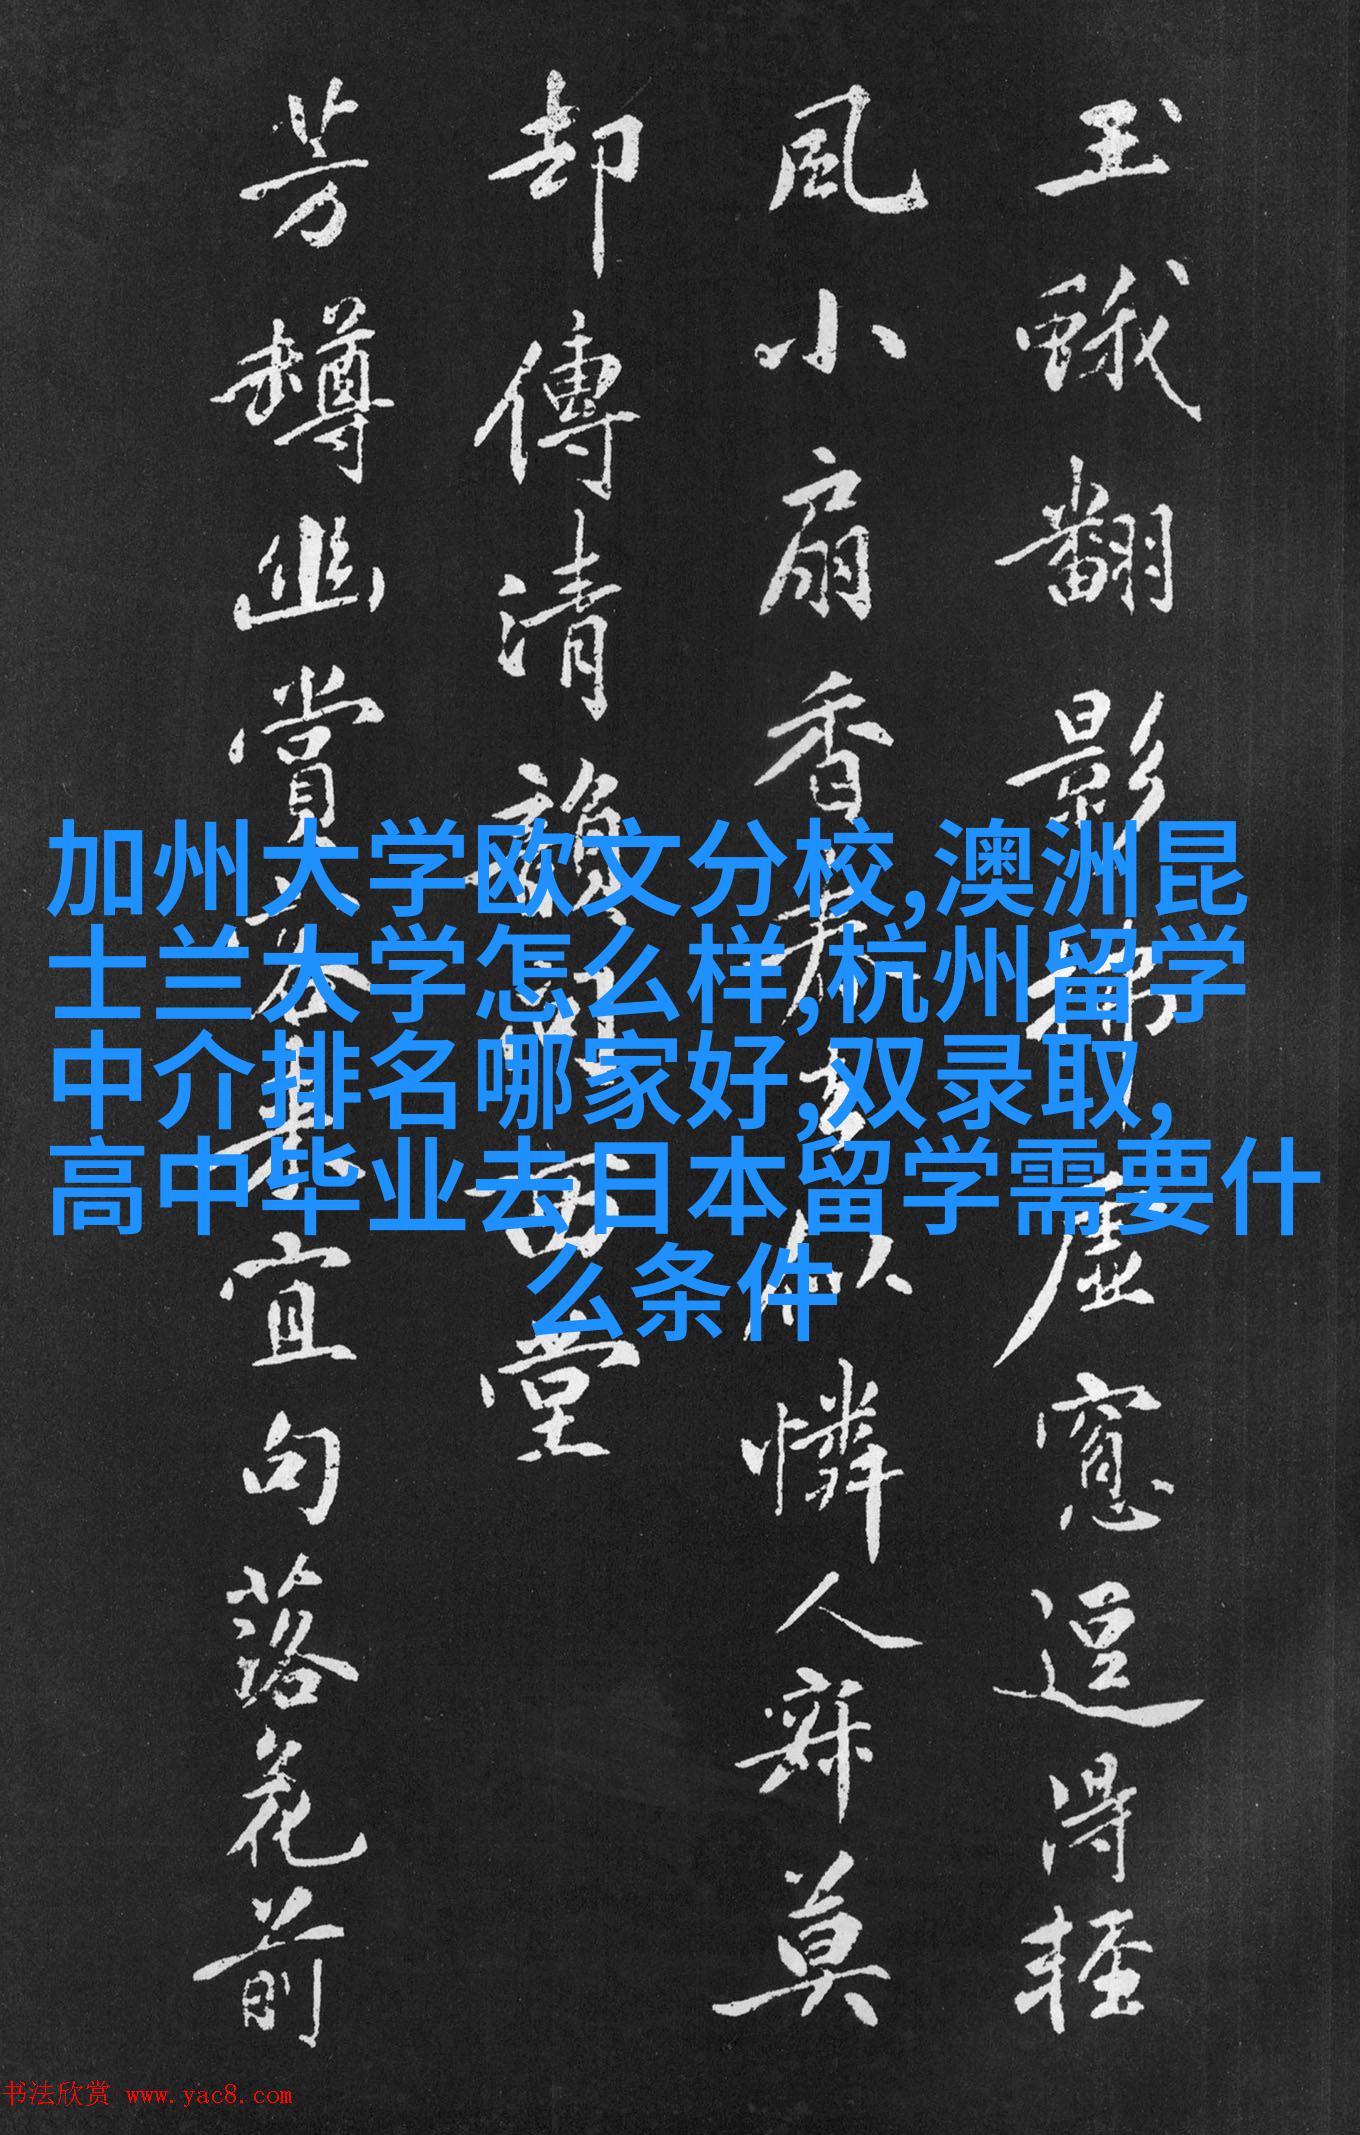 玉蛾翻影拂虛窗逗得輕
風小扇香若有似憐人寂莫
却傳清韻向西堂
芳樽幽賞客真宜句落花前
加州大学欧文分校,澳洲昆
士兰大学怎么样,杭州留学
中介排名哪家好,双录取,
高中毕业去日本留学需要什
么条件
书法欣赏 www.yac8.com